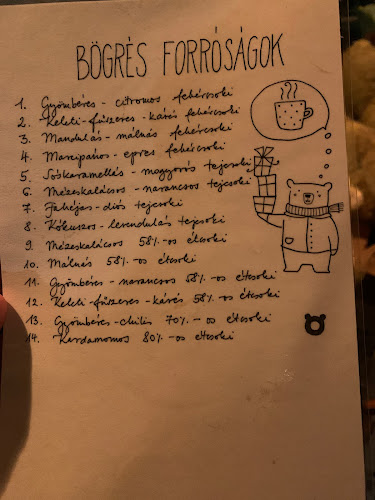 BÖGRÉS FORRÓSÁGOK
1. Gyömbéres - citromos fehércsoki
2. Keleti-fűszeres - kávés fehércsoki
3. Mandulás - málnás fehércsoki
4. Marcipános - epres fehércsoki
5. Sóskaramellás - mogyorós tejcsoki
6. Mézeskalácsos - narancsos tejcsoki
7. Fahéjas - diós tejcsoki
8. Kókuszos - levendulás tejcsoki
9. Mézeskalácsos 58%-os étcsoki
10. Málnás 58%-os étcsoki
11. Gyömbéres - narancsos 58%-os étcsoki
12. Keleti-fűszeres - kávés 58%-os étcsoki
13. Gyömbéres - chilis 70%-os étcsoki
14. Kardamomos 80%-os étcsoki